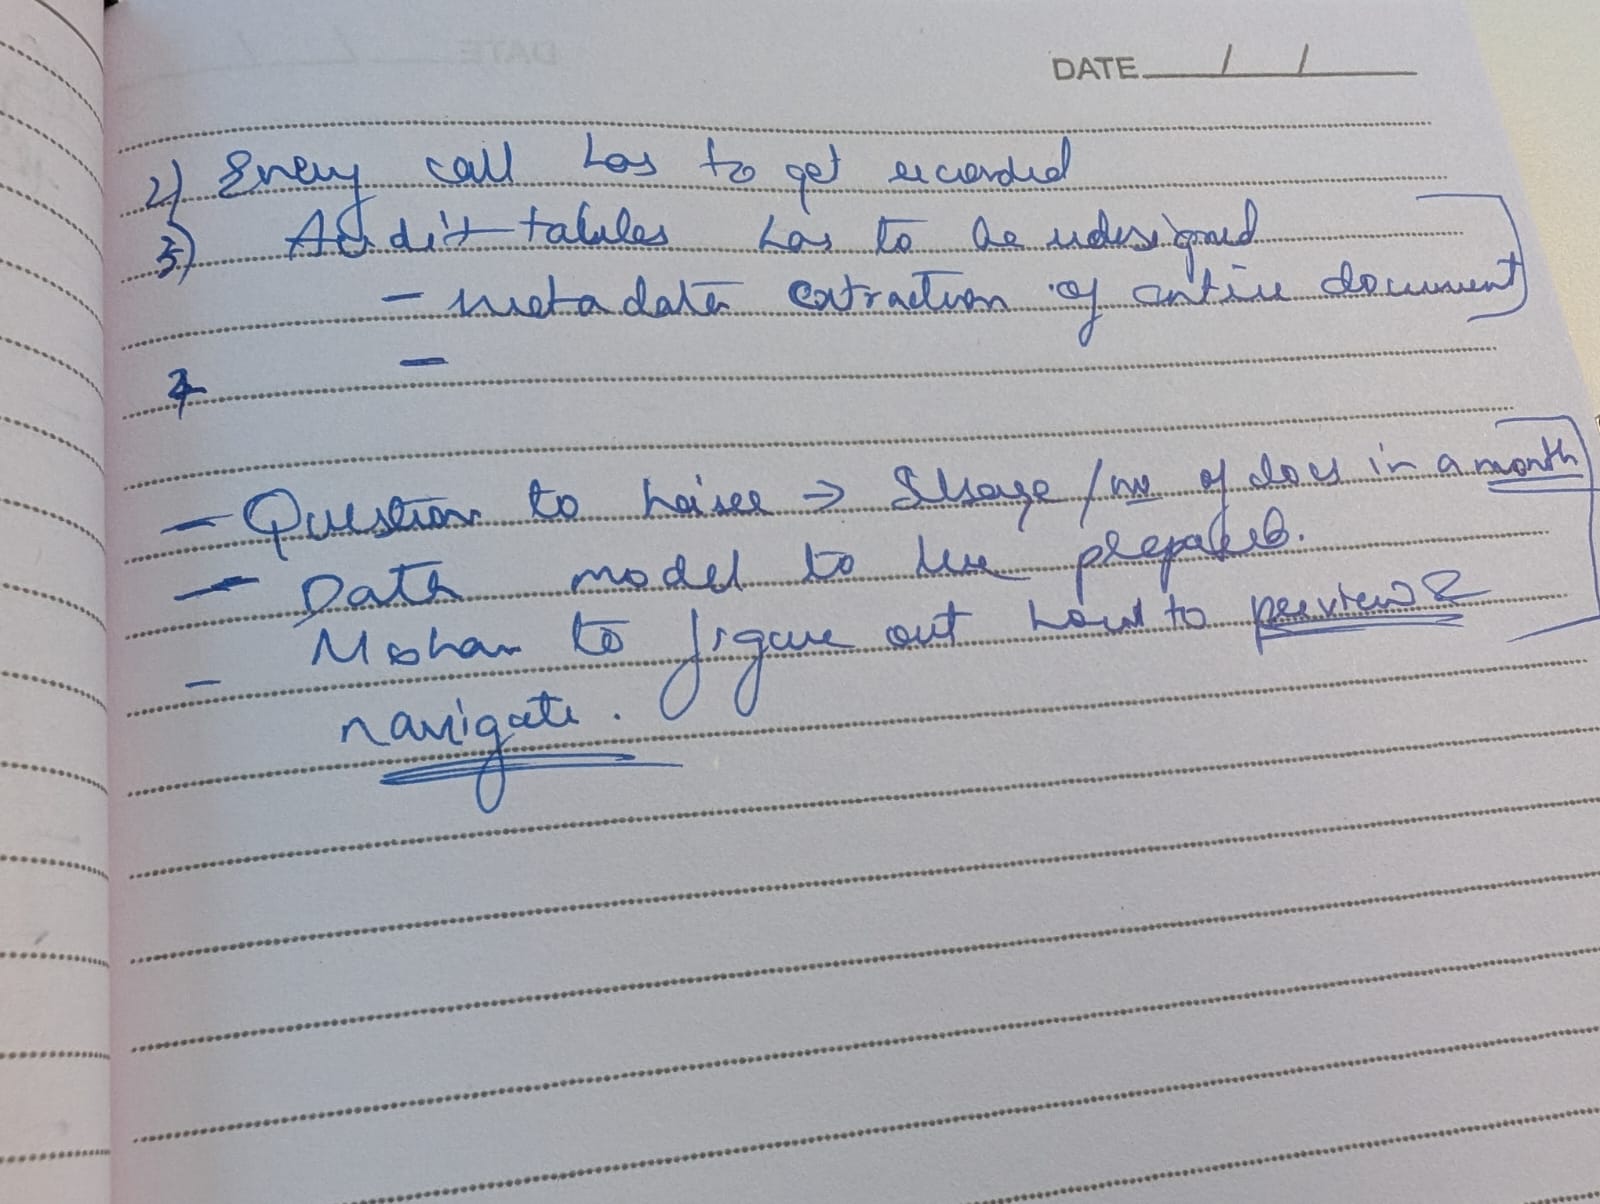 DATE / /
2) Every call has to get recorded
3) Audit tables has to be redesigned
- metadata extraction of entire document
-
4
- Question to raise → Usage / no of docs in a month
- Data model to be prepared.
- Mohan to figure out how to preview &
navigate.